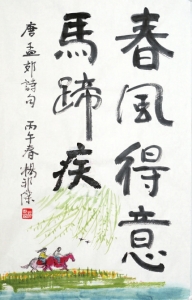 春風得意
馬蹄疾
唐孟郊詩句 丙午春